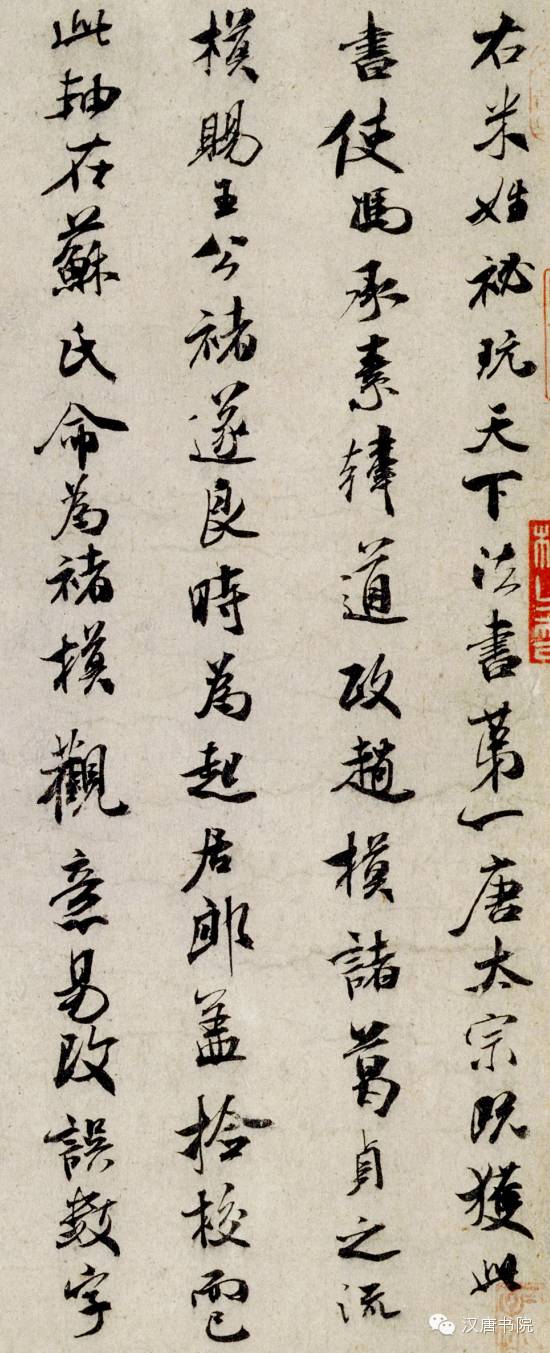 右米姓祕玩天下法書第一唐太宗既獲此
書使馮承素韓道政趙模諸葛貞之流
模賜王公褚遂良時為起居郎蓋捡校而已
此軸在蘇氏命為褚模觀意易改誤數字
汉唐书院